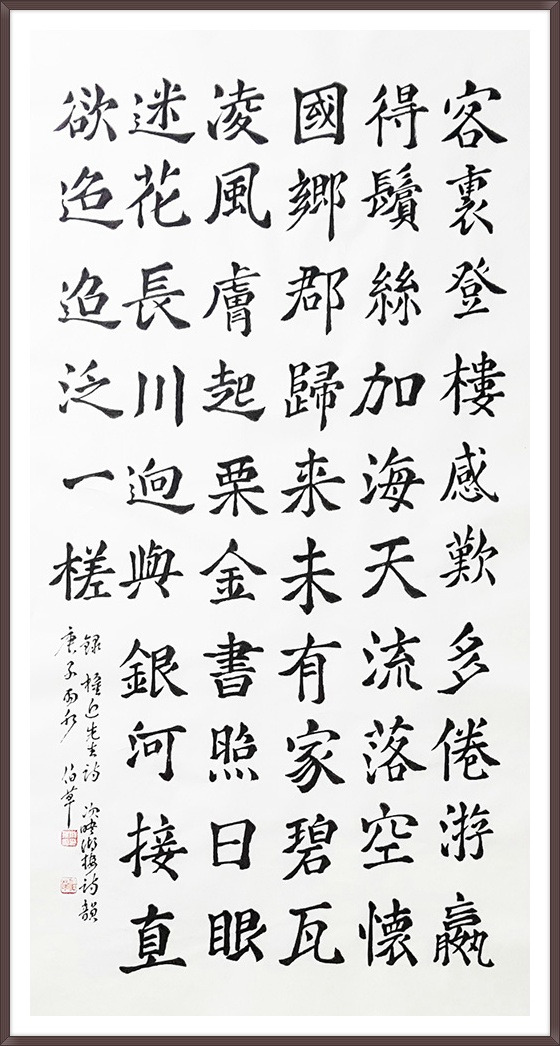 客裏登樓感歎多倦游嬴
得鬢絲加海天流落空懷
國鄉郡歸来未有家碧瓦
凌風膚起粟金書照日眼
迷花長川迥與銀河接直
欲迢迢泛一槎
錄 權近先生詩 次映湖樓詩韻
庚子雨水 伯草